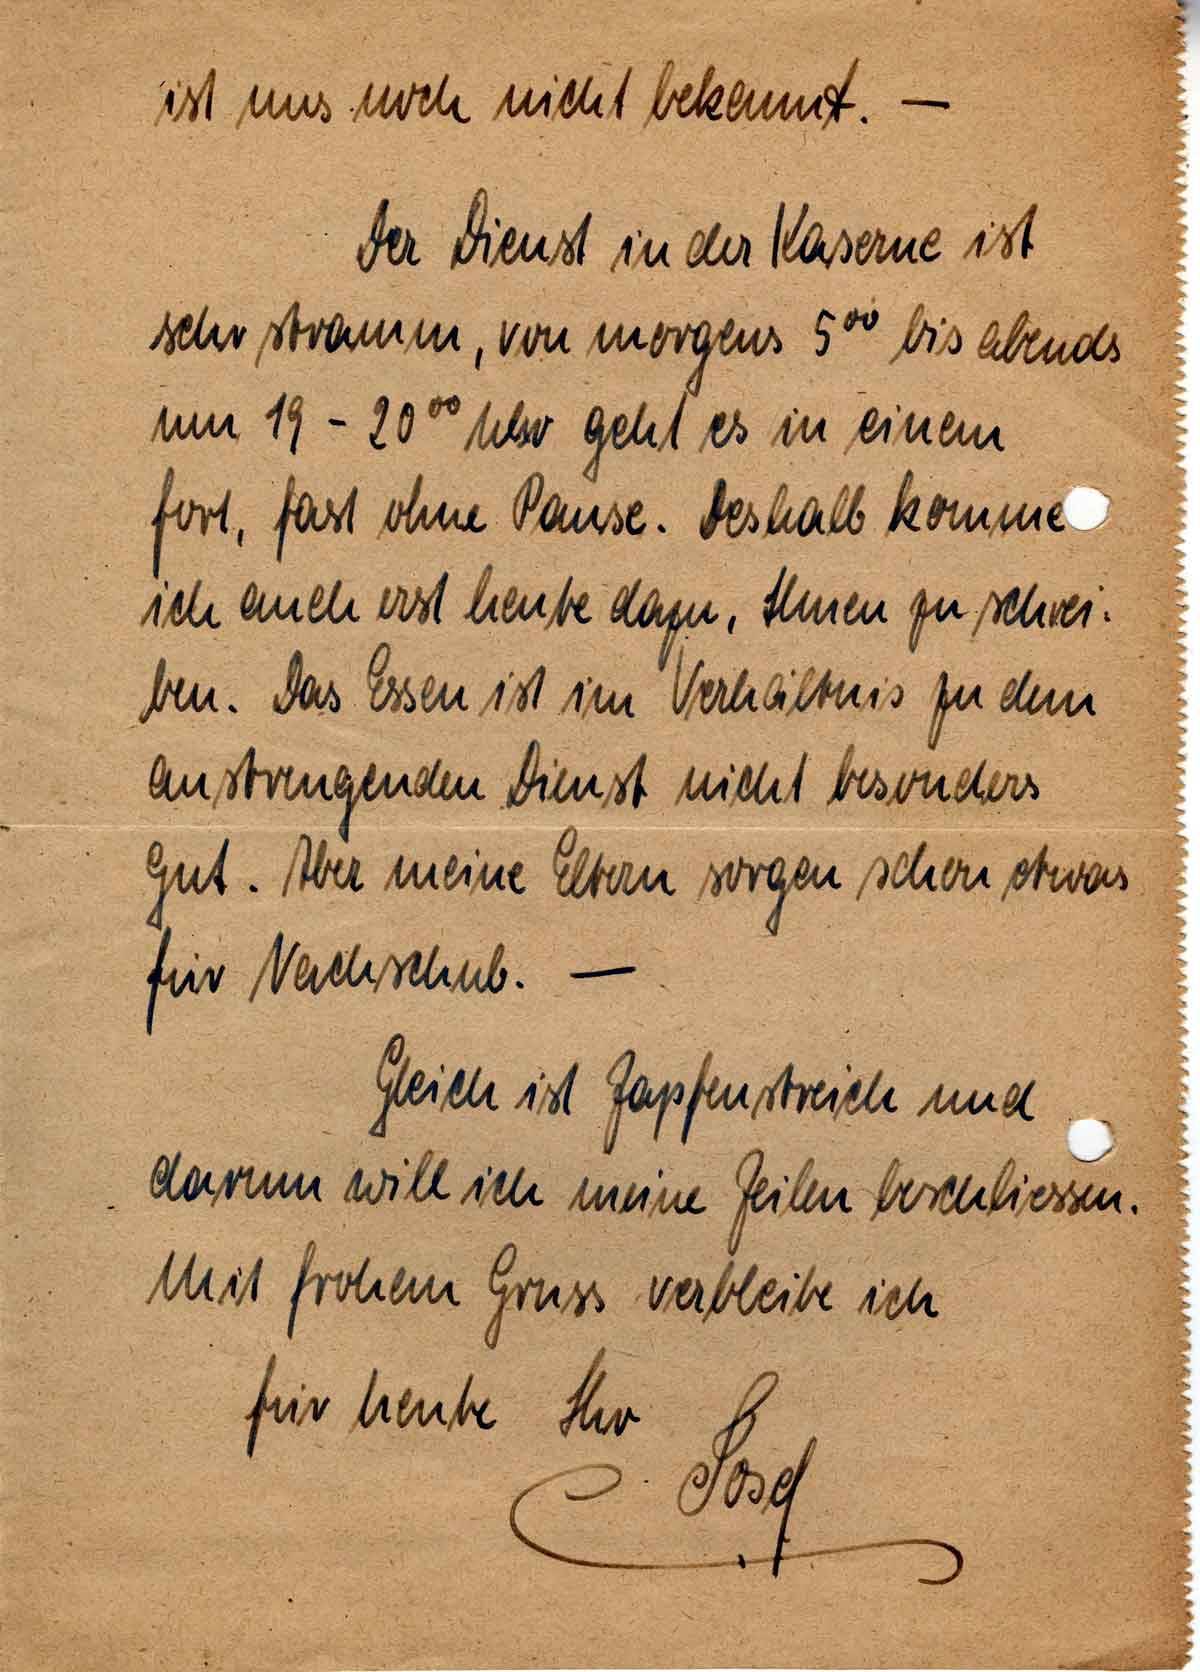 ist uns noch nicht bekannt. —
Der Dienst in der Kaserne ist
sehr stramm, von morgens 5⁰⁰ bis abends
um 19 - 20⁰⁰ Uhr geht es in einem
fort, fast ohne Pause. Deshalb komme
ich auch erst heute dazu, Ihnen zu schrei-
ben. Das Essen ist im Verhältnis zu dem
anstrengenden Dienst nicht besonders
Gut. Aber meine Eltern sorgen schon etwas
für Nachschub. —
Gleich ist Zapfenstreich und
darum will ich meine Zeilen beschliessen.
Mit frohem Gruss verbleibe ich
für heute Ihr